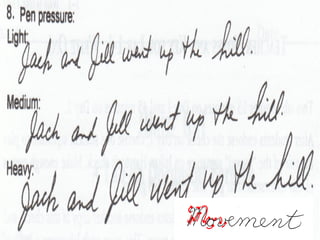 8. Pen pressure:
Light,
Jack and Jill went up the hill.
Medium:
Jack and Jill went up the hill.
Heavy:
Jack and Jill went up the hill.
Movement